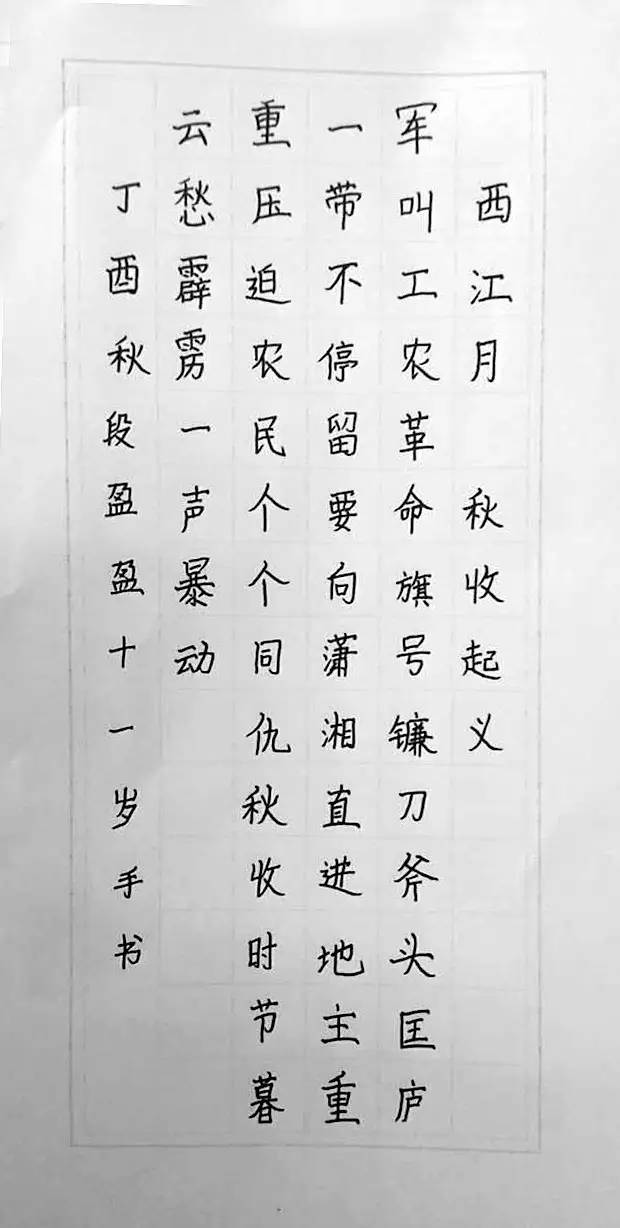 西江月 秋收起义
军叫工农革命旗号镰刀斧头匡庐
一带不停留要向潇湘直进地主重
重压迫农民个个同仇秋收时节暮
云愁霹雳一声暴动
丁酉秋段盈盈十一岁手书